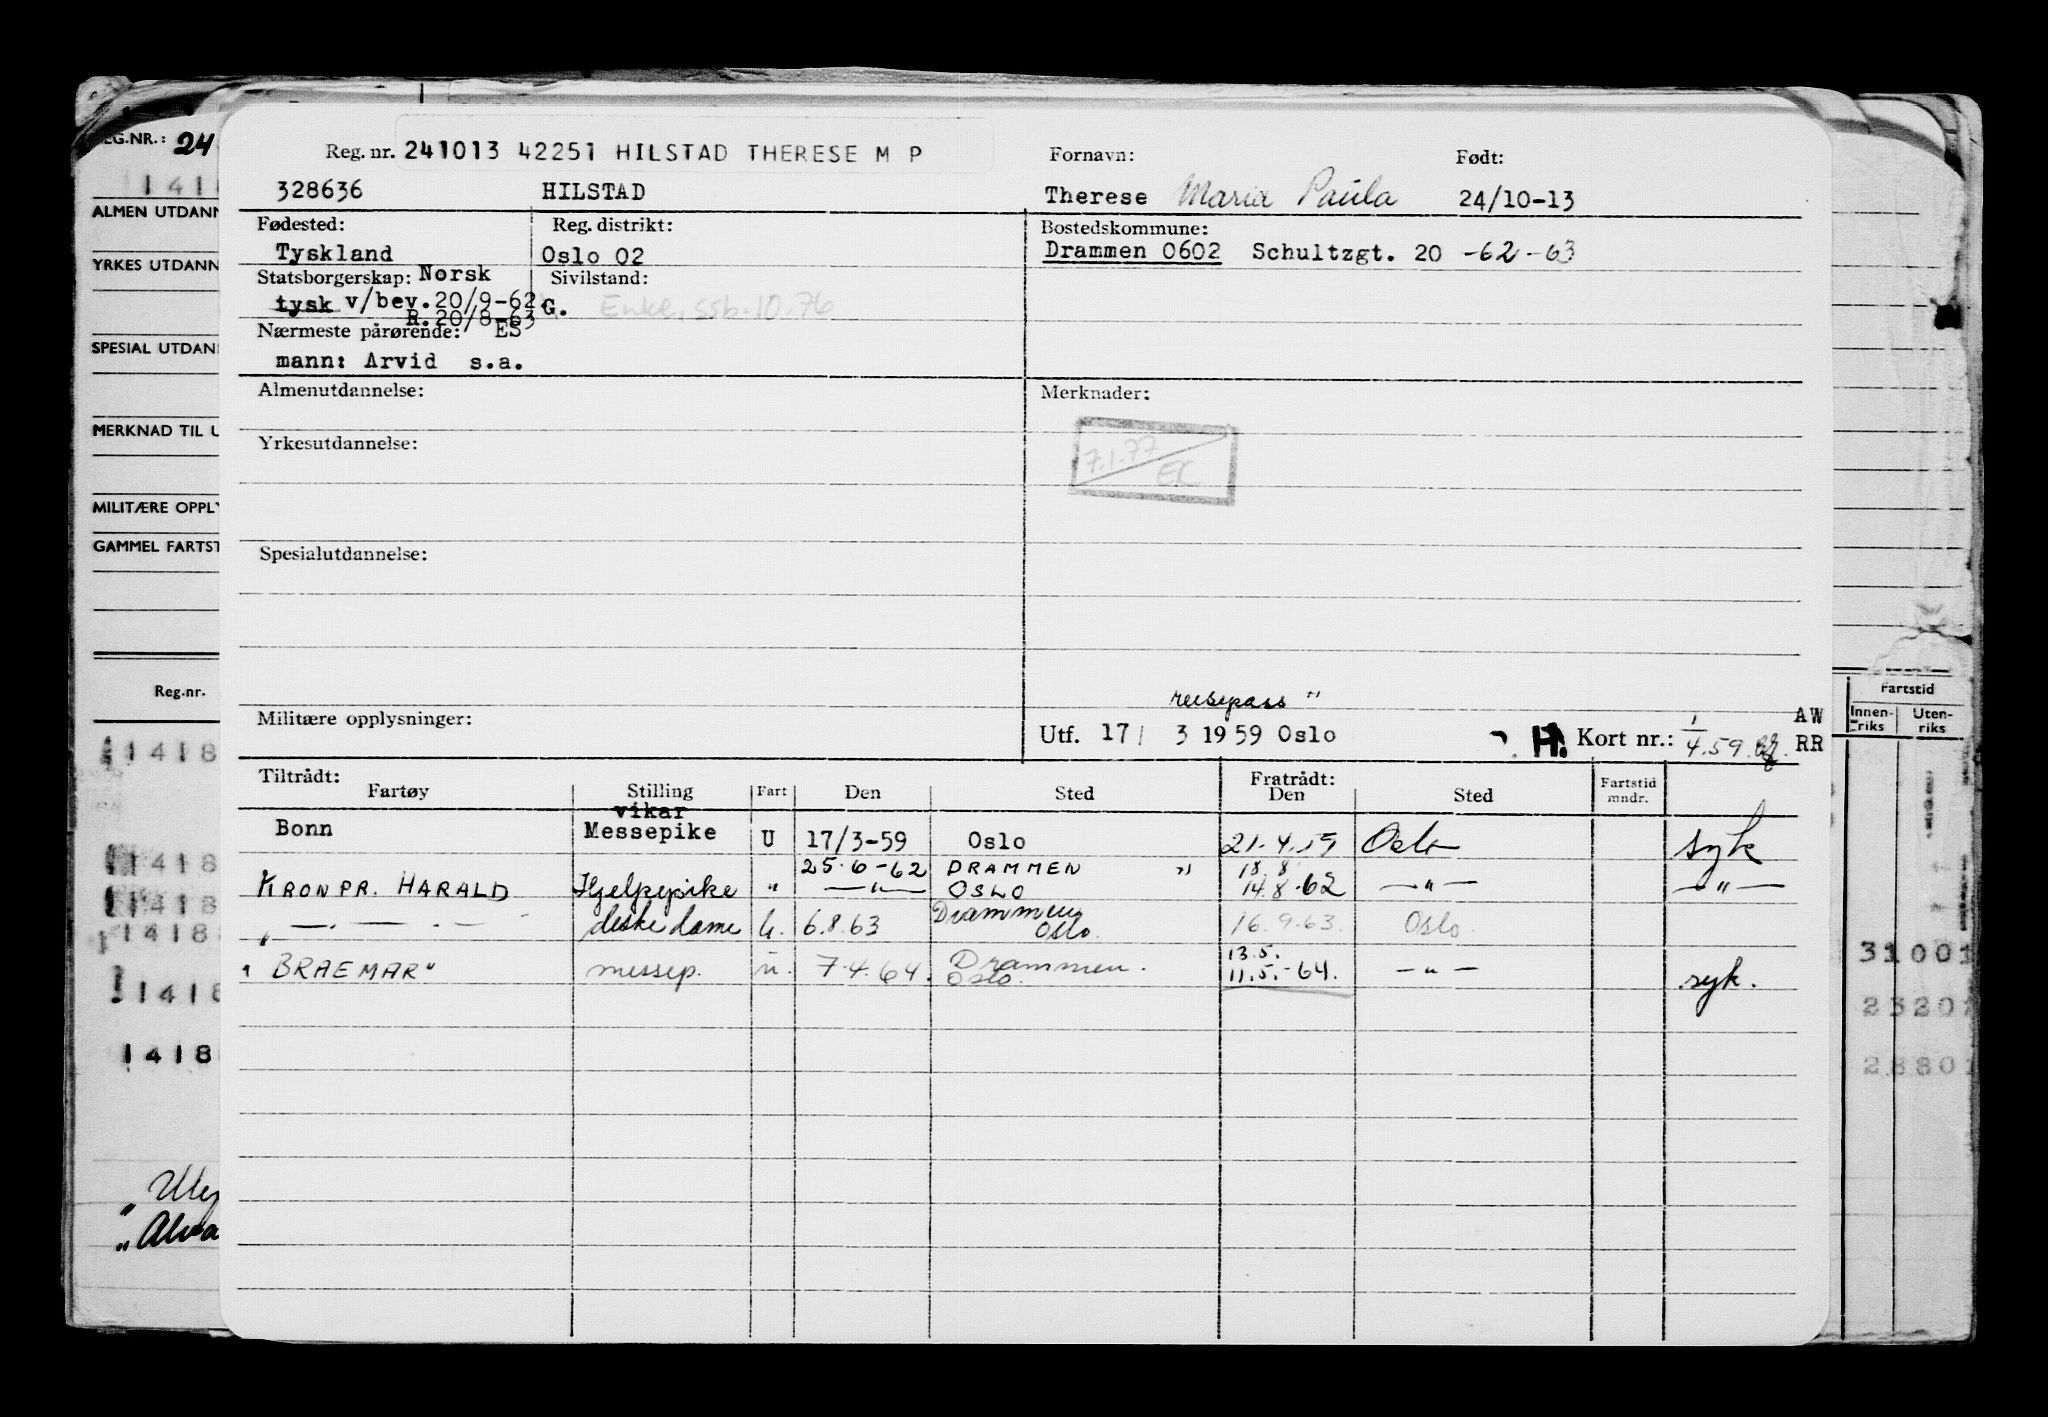 Reg. nr. 241013 42251 HILSTAD THERESE M P Fornavn: Født:
328636 HILSTAD Therese Maria Paula 24/10-13
Fødested: Reg. distrikt: Bostedskommune:
Tyskland Oslo 02 Drammen 0602 Schultzgt. 20 -62-63
Statsborgerskap: Norsk Sivilstand:
tysk v/bev. 20/9-62 G. Enke, ssb. 10.76
R. 20/8-63
Nærmeste pårørende: ES
mann: Arvid s.a.
Almenutdannelse: Merknader:
7.1.77
EK
Yrkesutdannelse:
Spesialutdannelse:
reisepass "
Militære opplysninger: Utf. 17/ 3 1959 Oslo H. Kort nr.: 1 AW
4.59. RR
Tiltrådt: Fratrådt:
Fartøy Stilling Fart Den Sted Den Sted Fartstid
mndr.
vikar
Bonn Messepike U 17/3-59 Oslo 21.4.59 Oslo syk
25.6-62 DRAMMEN " 18.8
KRONPR. HARALD Hjelpepike " —"— OSLO 14.8.62 —"— —"—
— " — diskedame U. 6.8.63 Drammen
Oslo. 16.9.63. Oslo.
13.5.
"BRAEMAR" messep. u. 7.4.64. Drammen. 11.5.-64. —"— syk.
Oslo.
REG.NR.: 24
1418
ALMEN UTDANN
YRKES UTDANN
SPESIAL UTDAN
MERKNAD TIL U
MILITÆRE OPPLY
GAMMEL FARTST
Reg.nr.
1418
1418
1418
1418
1418
1418
Fartstid
Innen-
riks Uten-
riks
31001
23201
28801